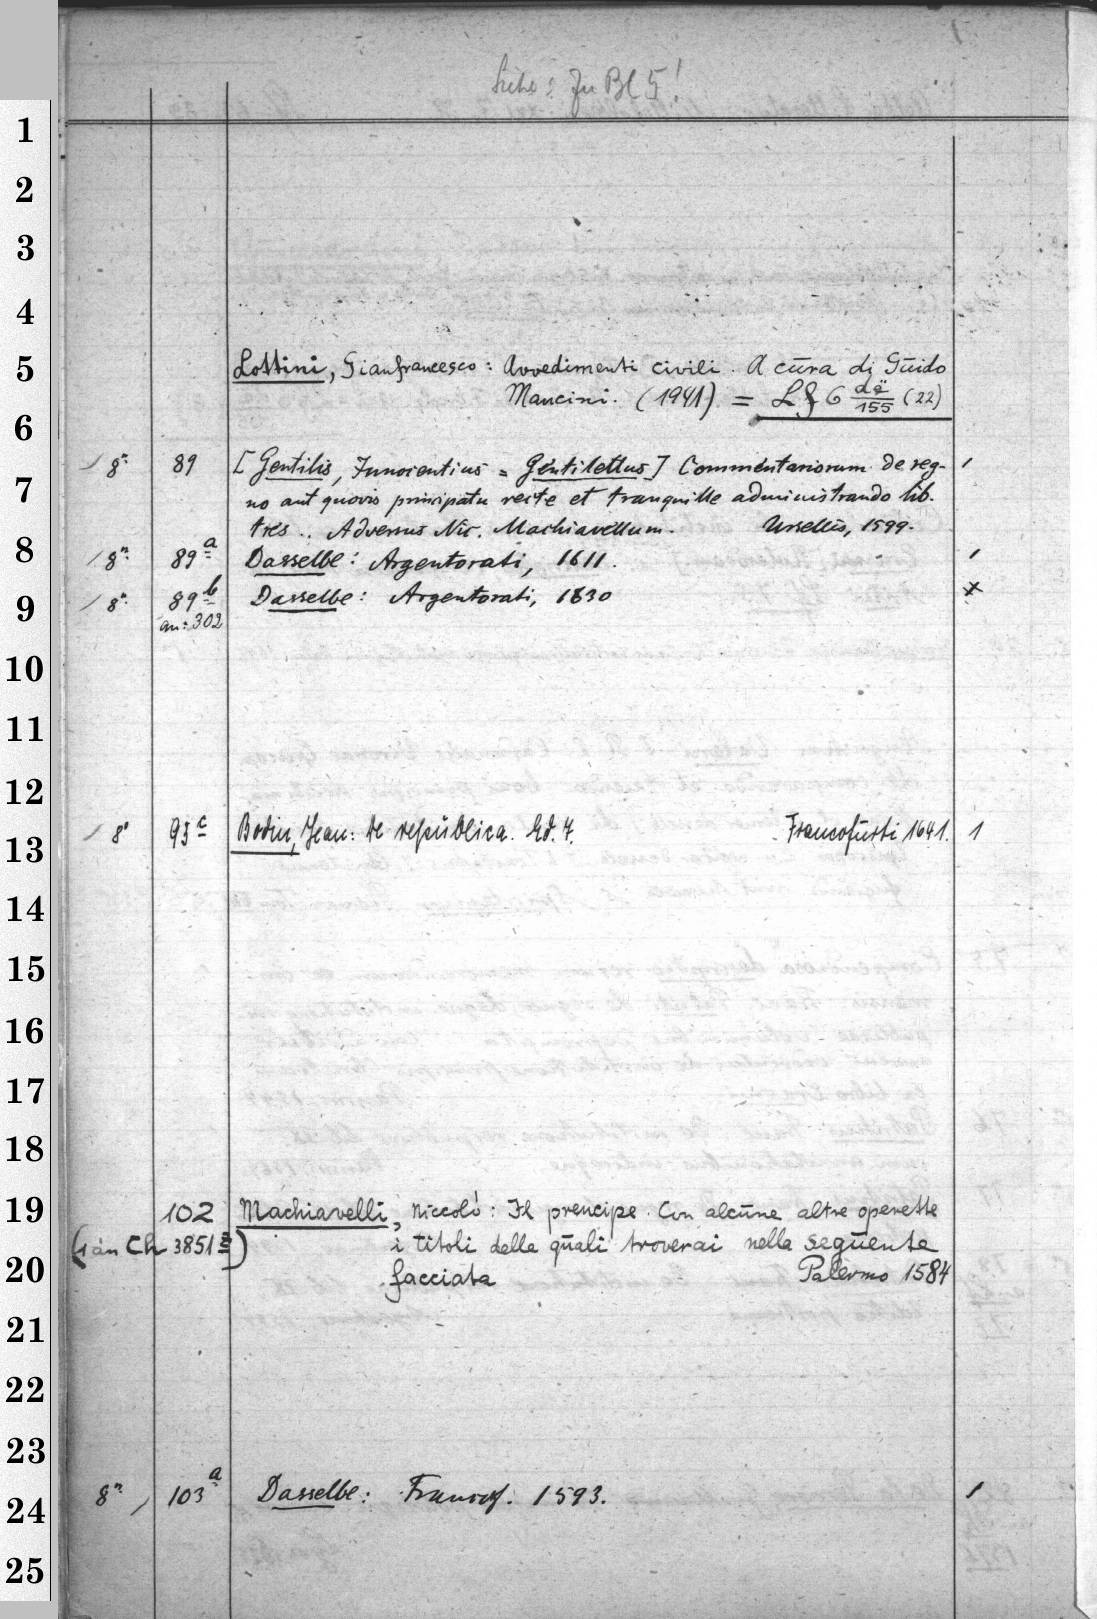 1
Siehe: Zu Bl 5!
1
2
3
4
5
6
7
8
9
10
11
12
13
14
15
16
17
18
19
20
21
22
23
24
25
Lottini, Gianfrancesco: Avvedimenti civili. A cura di Guido
Mancini. (1941) = 6 155 (22)
8° 89 [Gentilis, Innocentius = Gentilettus] Commentariorum de reg- 1
no aut quovis principatu recte et tranquille administrando lib.
tres .. Adversus Nic. Machiavellum. Ursellis, 1599.
8° 89 a Dasselbe: Argentorati, 1611. 1
8° 89 b Dasselbe: Argentorati, 1630 x
an: 302
8° 95 c Bodin, Jean: De republica. Ed. 7. Francofurti 1641. 1
102 Machiavelli, Niccolò: Il prencipe. Con alcune altre operette
(1 an Ch 3851 ) i titoli delle quali troverai nella seguente
facciata Palermo 1584
8° 103 a Dasselbe: Francof. 1593. 1